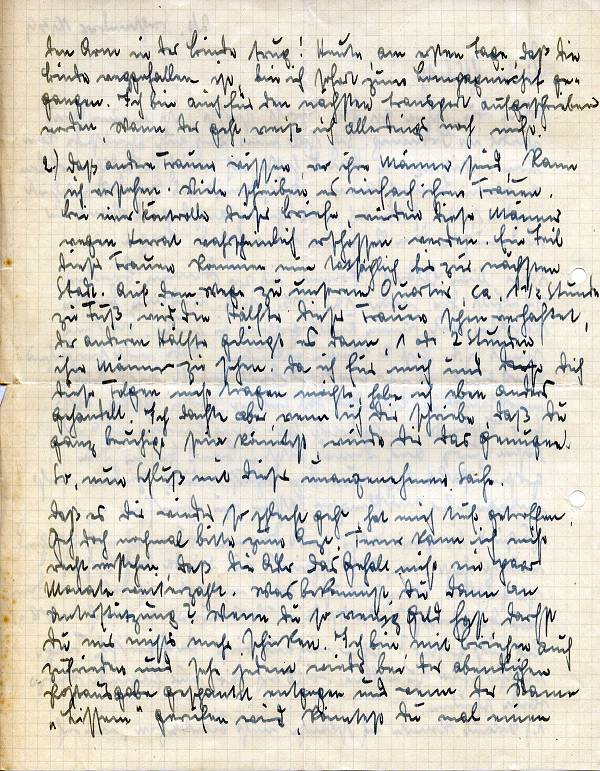 den Arm in der Binde trug! Heute, am ersten Tage, daß die
Binde weggefallen ist, bin ich sofort zum ge-
gangen. Ich bin auch für den nächsten Transport aufgeschrieben
worden, wann der geht, weiß ich allerdings noch nicht.
2) Daß andere Frauen wissen, wo ihre Männer sind, kann
ich verstehen. Viele schreiben es einfach ihren Frauen.
Bei einer Kontrolle dieser Briefe, würden diese Männer
wegen Verrat wahrscheinlich erschossen werden. Ein Teil
dieser Frauen kommen nun tatsächlich bis zur nächsten
Stadt. Auf dem Wege zu unserem Quartier, ca. 1 1/2 Stunde
zu Fuß, wird die Hälfte dieser Frauen schon verhaftet,
der anderen Hälfte gelingt es dann, 1 oder 2 Stunden
ihre Männer zu sehen. Da ich für mich und Dich
diese Folgen nicht tragen möchte, habe ich eben anders
gehandelt. Ich dachte aber, wenn ich Dir schreibe, daß Du
ganz beruhigt sein könntest, würde Dir das genügen.
So, nun Schluß mit dieser unangenehmen Sache.
Daß es Dir wieder so schlecht geht, hat mich tief getroffen.
Geh doch nochmal bitte zum Arzt. Ferner kann ich nicht
recht verstehen, daß die das Gehalt nicht ein paar
Monate weiterzahlt. Was bekommst Du dann an
Unterstützung? Wenn Du so wenig Geld hast, darfst
Du mir nichts mehr schicken. Ich bin mit Briefen auch
zufrieden und sehe jedem wieder bei der abendlichen
Postausgabe gespannt entgegen und wenn der Name
" " gerufen wird, könntest Du mal einen